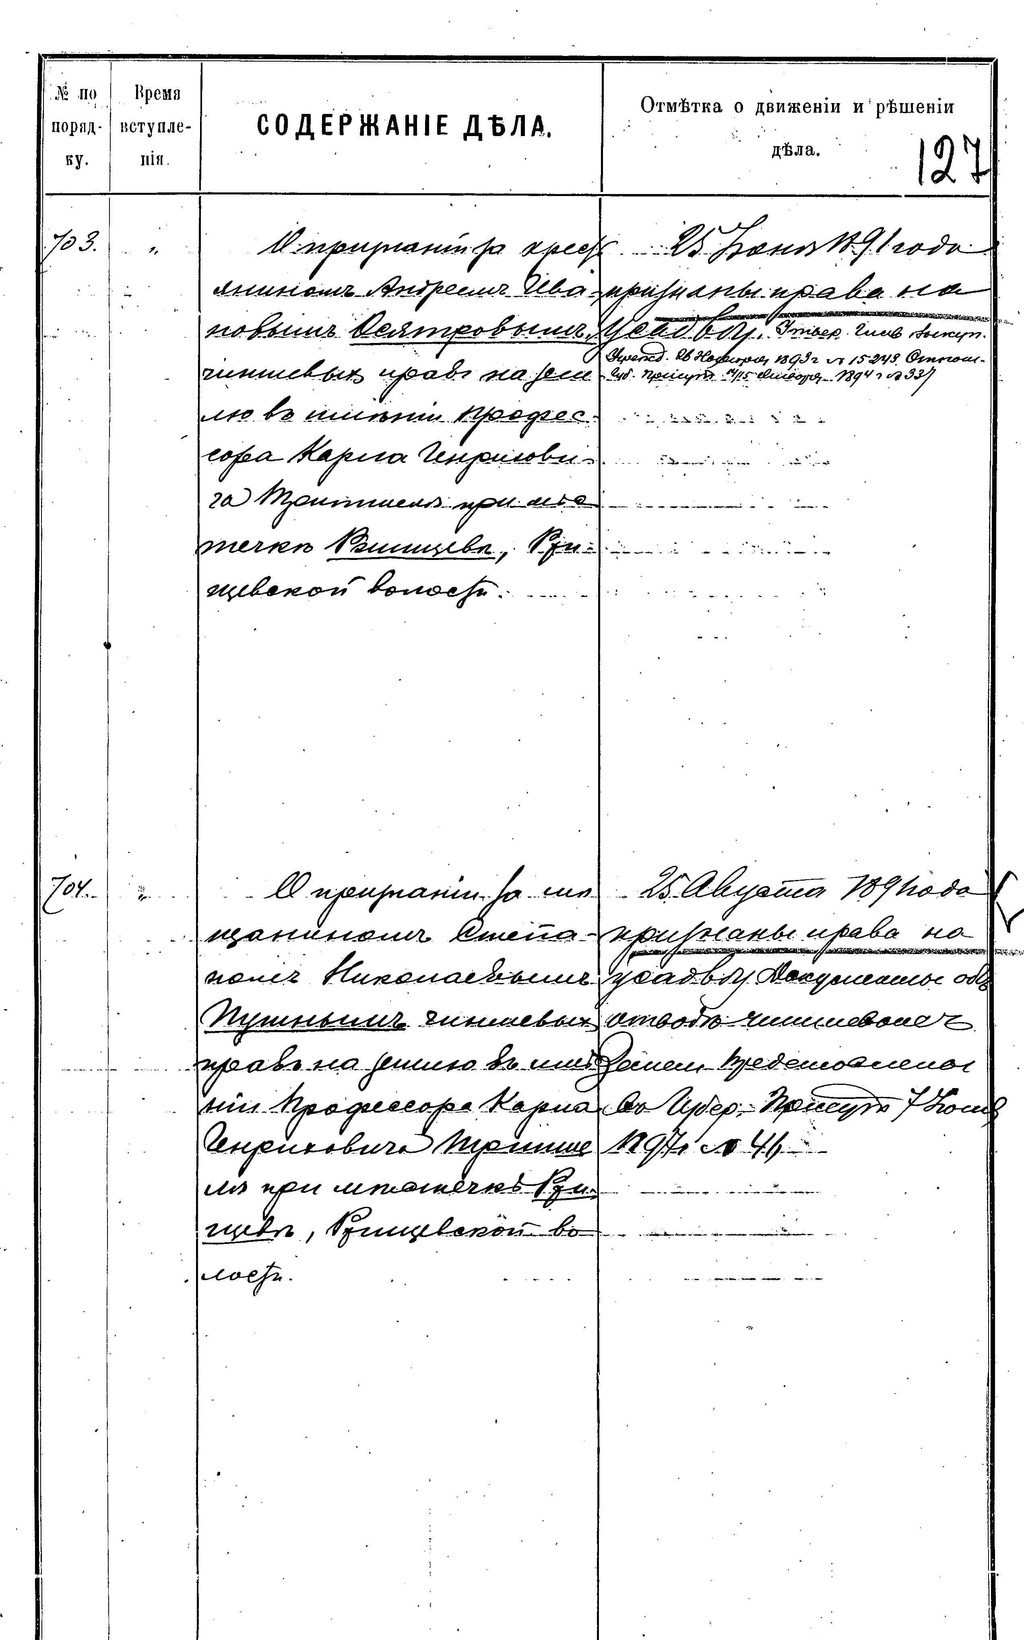 № по порядку.
Время вступленія.
СОДЕРЖАНІЕ ДѢЛА.
Отмѣтка о движеніи и рѣшеніи дѣла.
127
703.
"
О признаніи за крест
яниномъ Андреемъ Ива
новымъ Осятровымъ,
чиншевыхъ правъ на зем
лю въ имѣніи Профес
сора Карла Генрихови
ча Тритшеля при мѣс
течкѣ Ржищевѣ, Ржи
щевской волости.
25 Іюня 1891 года
признаны права на
усадьбу. Утвер. Глав. Выкуп.
Учрежд. 26 Ноября 1893 г. № 15243
Губ. Присут. 1894 г. № 337
704.
"
О признаніи за мѣ
щаниномъ Степа
номъ Николаевымъ
Путнымъ чиншевыхъ
правъ на землю въ имѣ
ніи Профессора Карла
Генриховича Тритше
ля при мѣстечкѣ Ржи
щевѣ, Ржищевской во
лости.
25 Августа 1891 года
признаны права на
усадьбу Документы объ
отводѣ чиншевой
земли представлены
въ Губер. Присут. 7 Іюня
1897 г. № 46